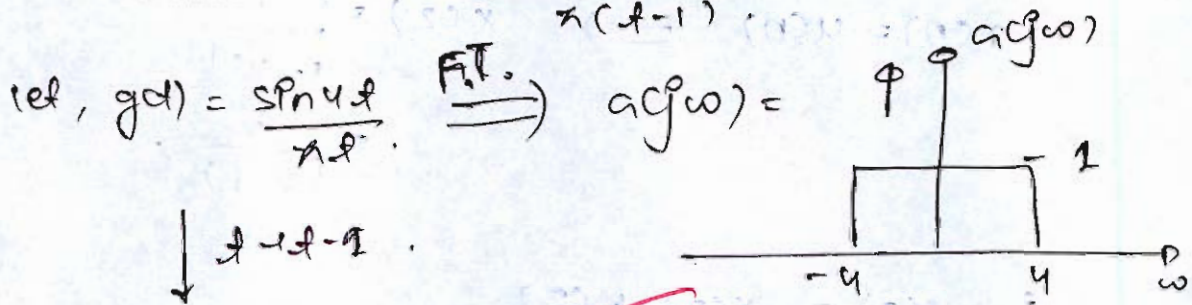 π(t-1).
let, g(t) = sin4t / πt. F.T. ⟹ G(jω) =
G(jω)
1
↓ t→t-1.
-4 4 ω